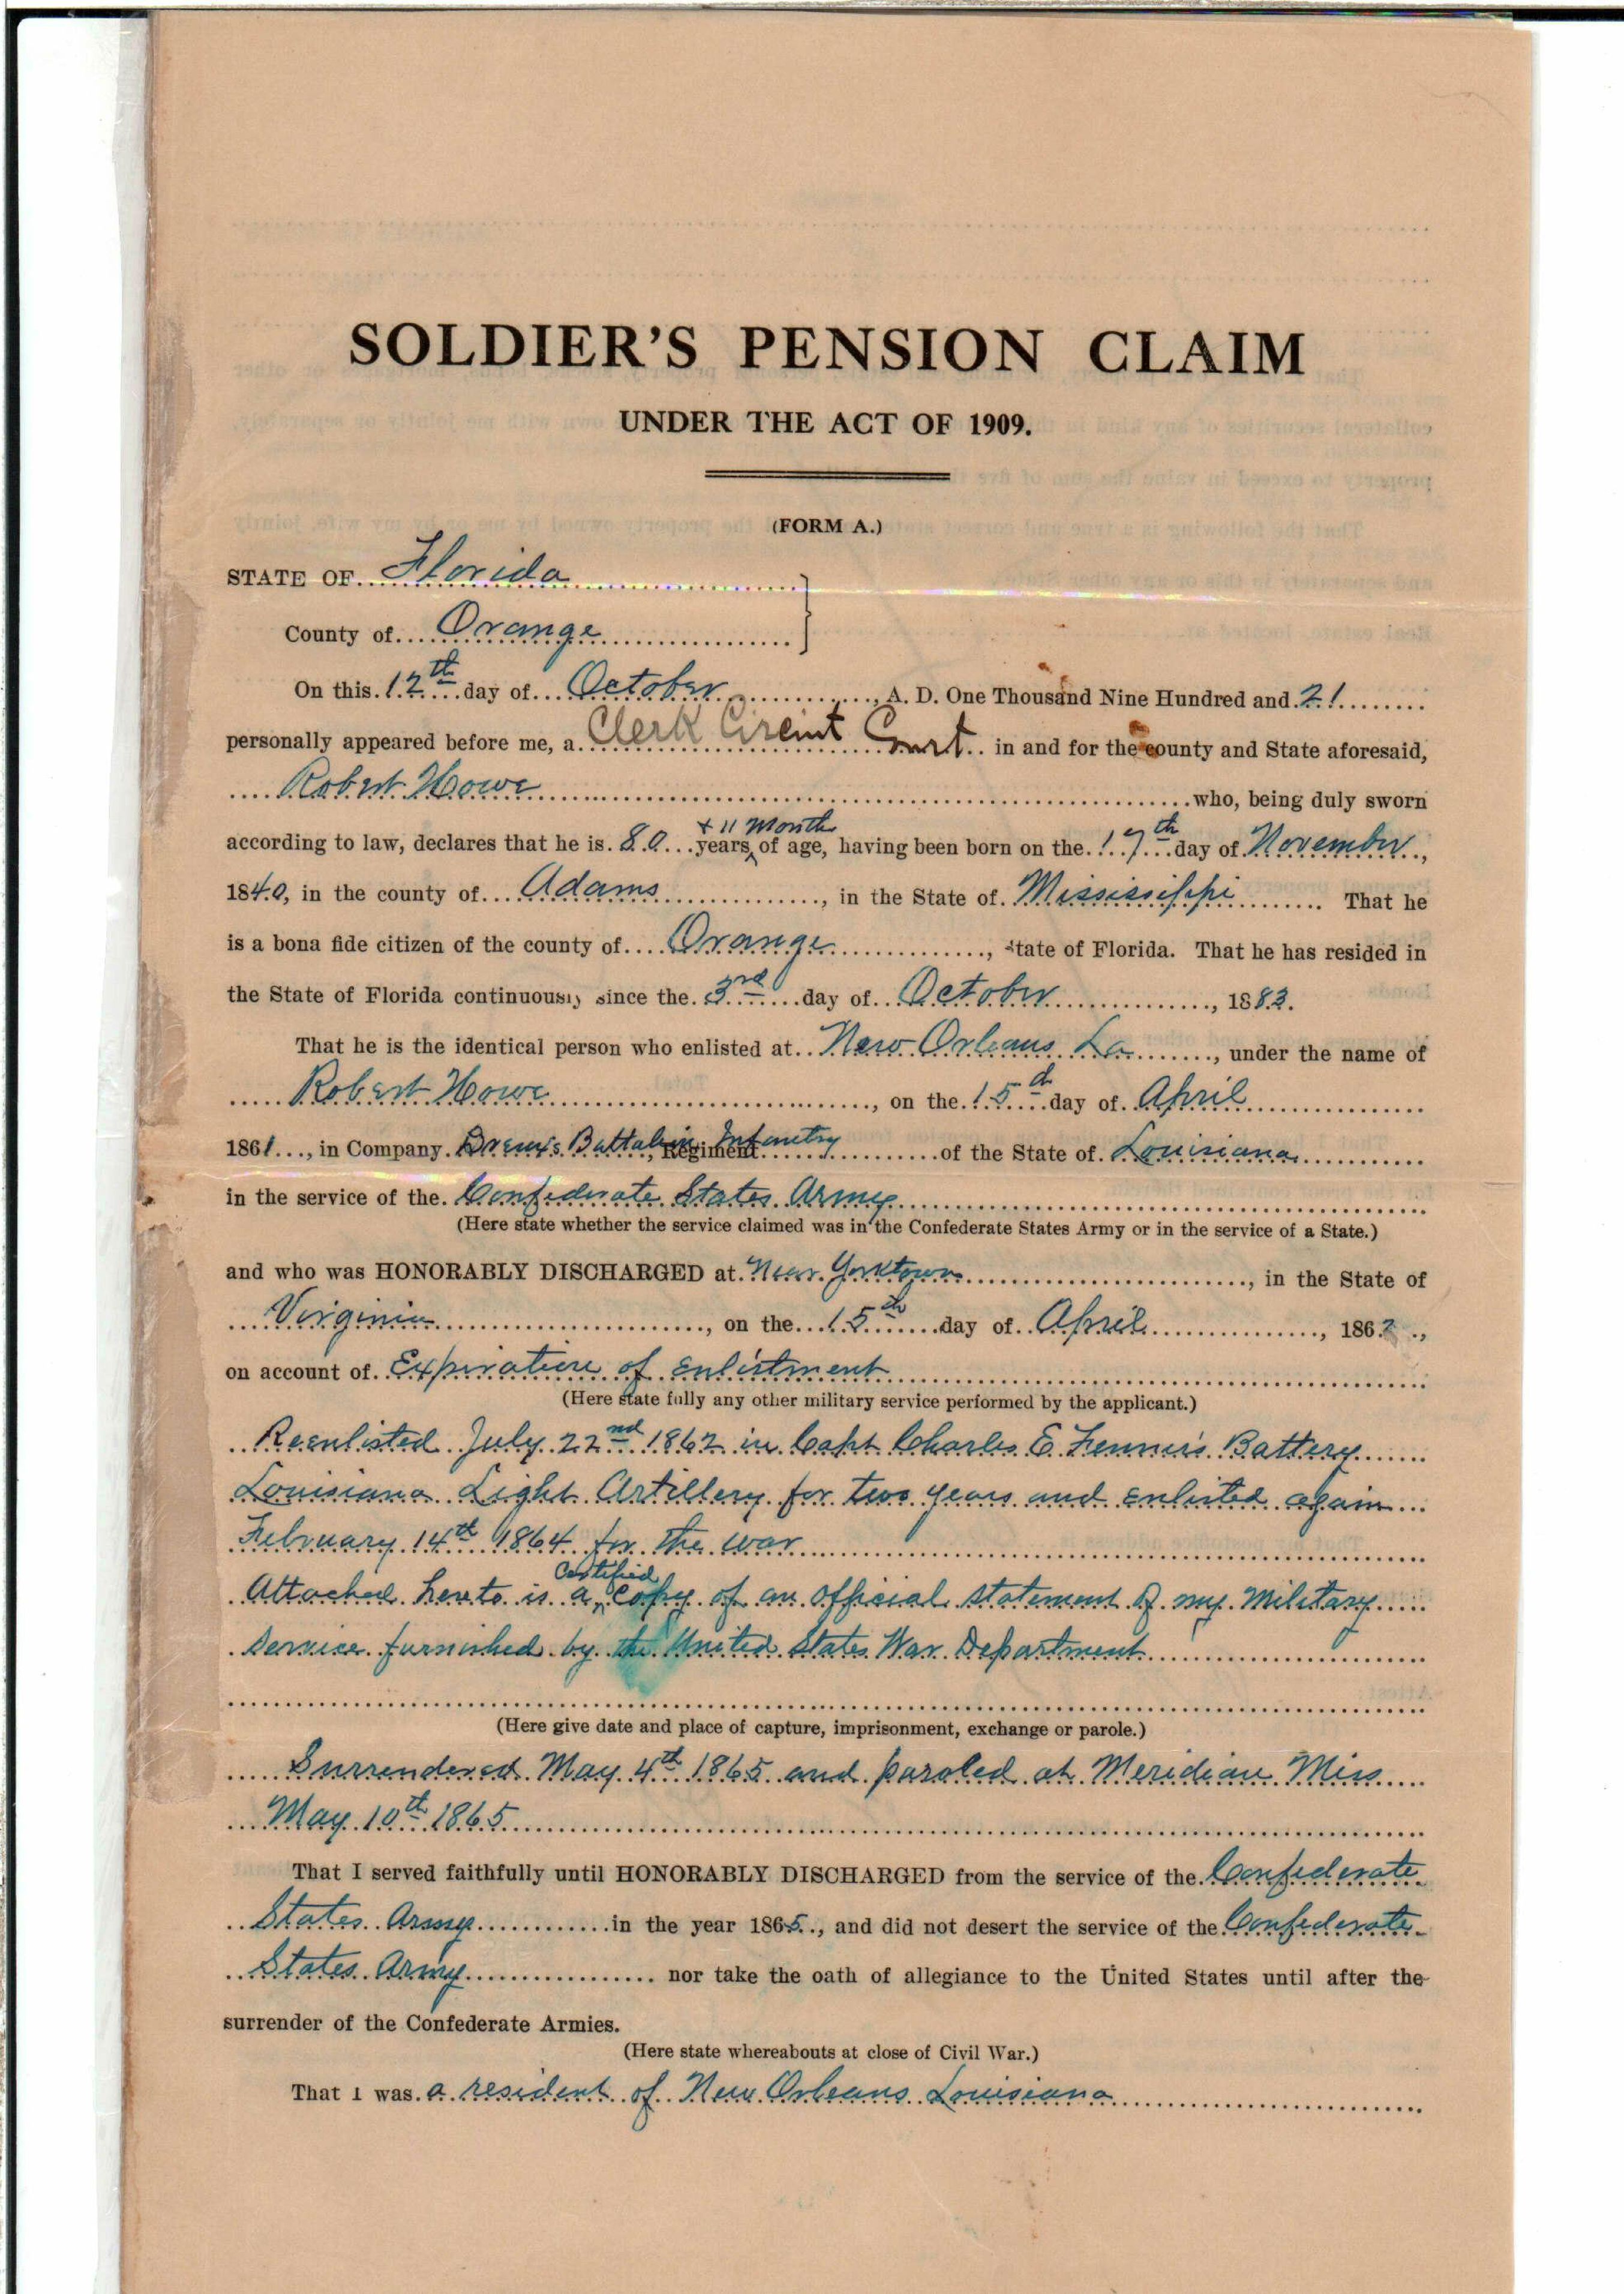 SOLDIER'S PENSION CLAIM
UNDER THE ACT OF 1909.
(FORM A.)
STATE OF Florida
County of Orange
On this 12th day of October, A. D. One Thousand Nine Hundred and 21
personally appeared before me, a Clerk Circuit Court in and for the county and State aforesaid,
Robert Howe who, being duly sworn
+ 11 Months
according to law, declares that he is 80 years of age, having been born on the 17th day of November,
1840, in the county of Adams, in the State of Mississippi That he
is a bona fide citizen of the county of Orange, State of Florida. That he has resided in
the State of Florida continuously since the 3rd day of October, 1883.
That he is the identical person who enlisted at New Orleans La, under the name of
Robert Howe, on the 15th day of April
1861, in Company Drew's Battalion, Regiment Infantry of the State of Louisiana
in the service of the Confederate States Army
(Here state whether the service claimed was in the Confederate States Army or in the service of a State.)
and who was HONORABLY DISCHARGED at Near Yorktown, in the State of
Virginia, on the 15th day of April, 1862,
on account of Expiration of enlistment
(Here state fully any other military service performed by the applicant.)
Reenlisted July 22nd 1862 in Capt Charles E Fenner's Battery
Louisiana Light Artillery for two years and enlisted again
February 14th 1864 for the war
Certified
Attached hereto is a copy of an official statement of my Military
service furnished by the United States War Department
(Here give date and place of capture, imprisonment, exchange or parole.)
Surrendered May 4th 1865 and paroled at Meridian Miss
May 10th 1865
That I served faithfully until HONORABLY DISCHARGED from the service of the Confederate
States Army in the year 1865, and did not desert the service of the Confederate
States Army nor take the oath of allegiance to the United States until after the
surrender of the Confederate Armies.
(Here state whereabouts at close of Civil War.)
That I was a resident of New Orleans Louisiana